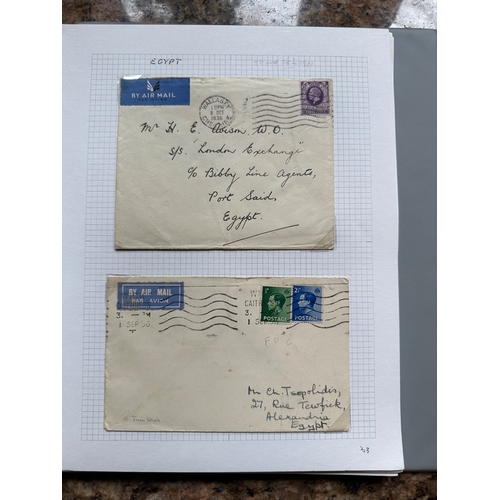 EGYPT
BY AIR MAIL
WALLASEY
1 30PM
1936
Mr H. E. Avison W.O.
S/S. "London Exchange"
c/o Bibby Line Agents,
Port Said,
Egypt.
BY AIR MAIL
PAR AVION
3.
1 SEP 36
3.
1 SEP
POSTAGE
POSTAGE
F D C
Mr Ch. Tsopolidis,
27, Rue Tewfick,
Alexandria
Egypt.